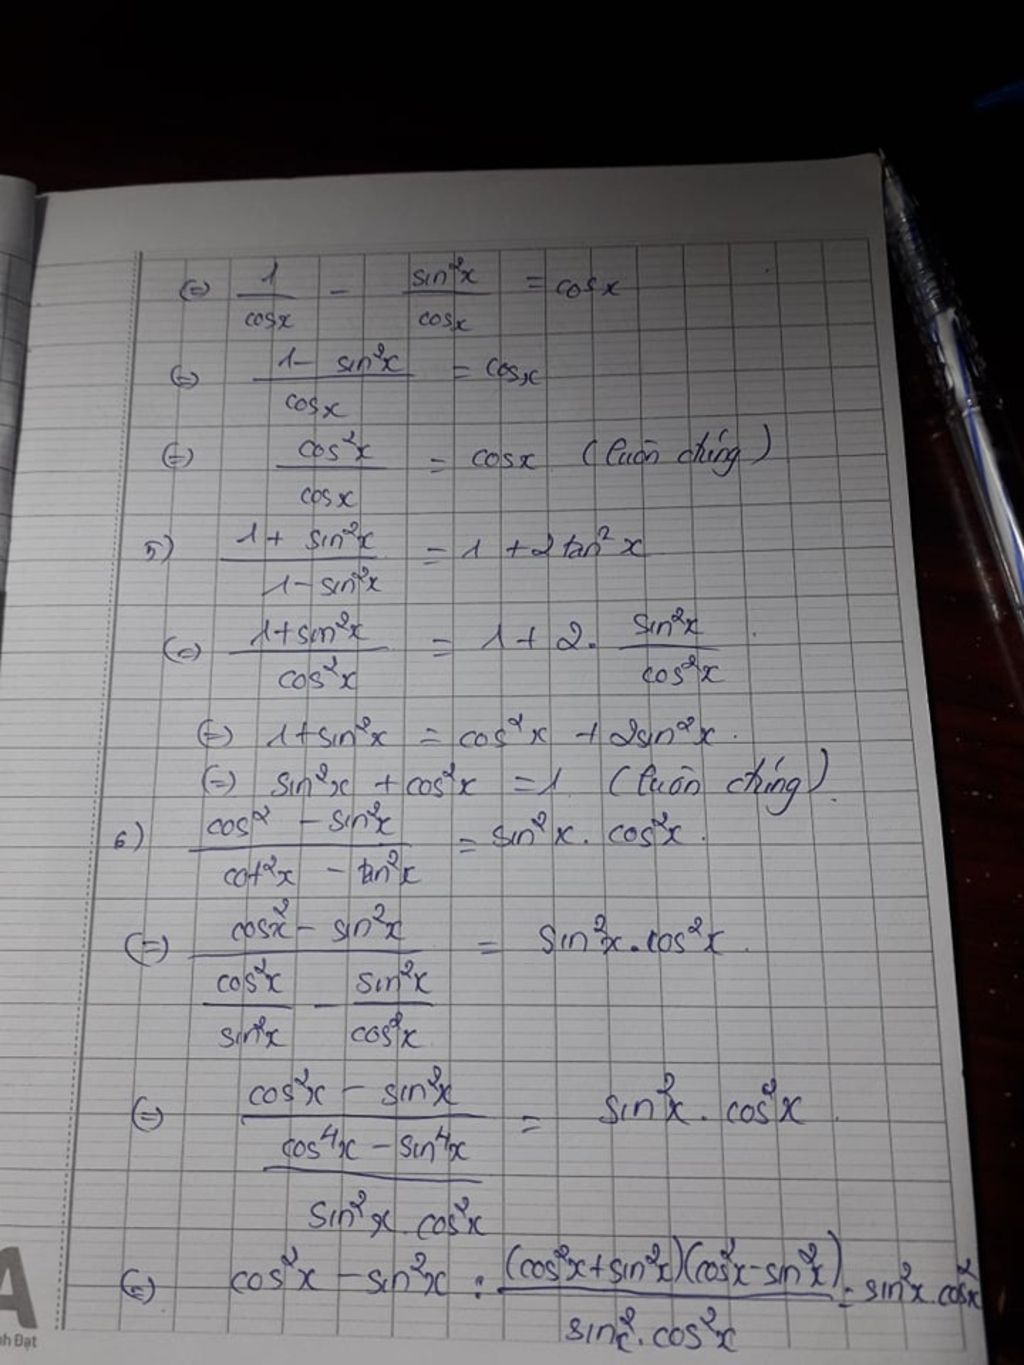 (=) 1/cosx - sin²x/cosx = cosx
(=) (1 - sin²x)/cosx = cosx
(=) cos²x/cosx = cosx (luôn đúng)
5) (1 + sin²x)/(1 - sin²x) = 1 + 2tan²x
(=) (1+sin²x)/cos²x = 1 + 2. sin²x/cos²x
(=) 1+sin²x = cos²x + 2sin²x.
(=) sin²x + cos²x = 1 (luôn đúng).
6) (cos² - sin²x)/(cot²x - tan²x) = sin²x. cos²x.
(=) (cosx² - sin²x)/(cos²x/sin²x - sin²x/cos²x) = sin²x.cos²x.
(=) (cos²x - sin²x)/((cos⁴x - sin⁴x)/(sin²x.cos²x)) = sin²x. cos²x.
(=) cos²x - sin²x : (cos²x+sin²x)(cos²x-sin²x)/(sin²x.cos²x) = sin²x.cos²x
A
nh Đạt